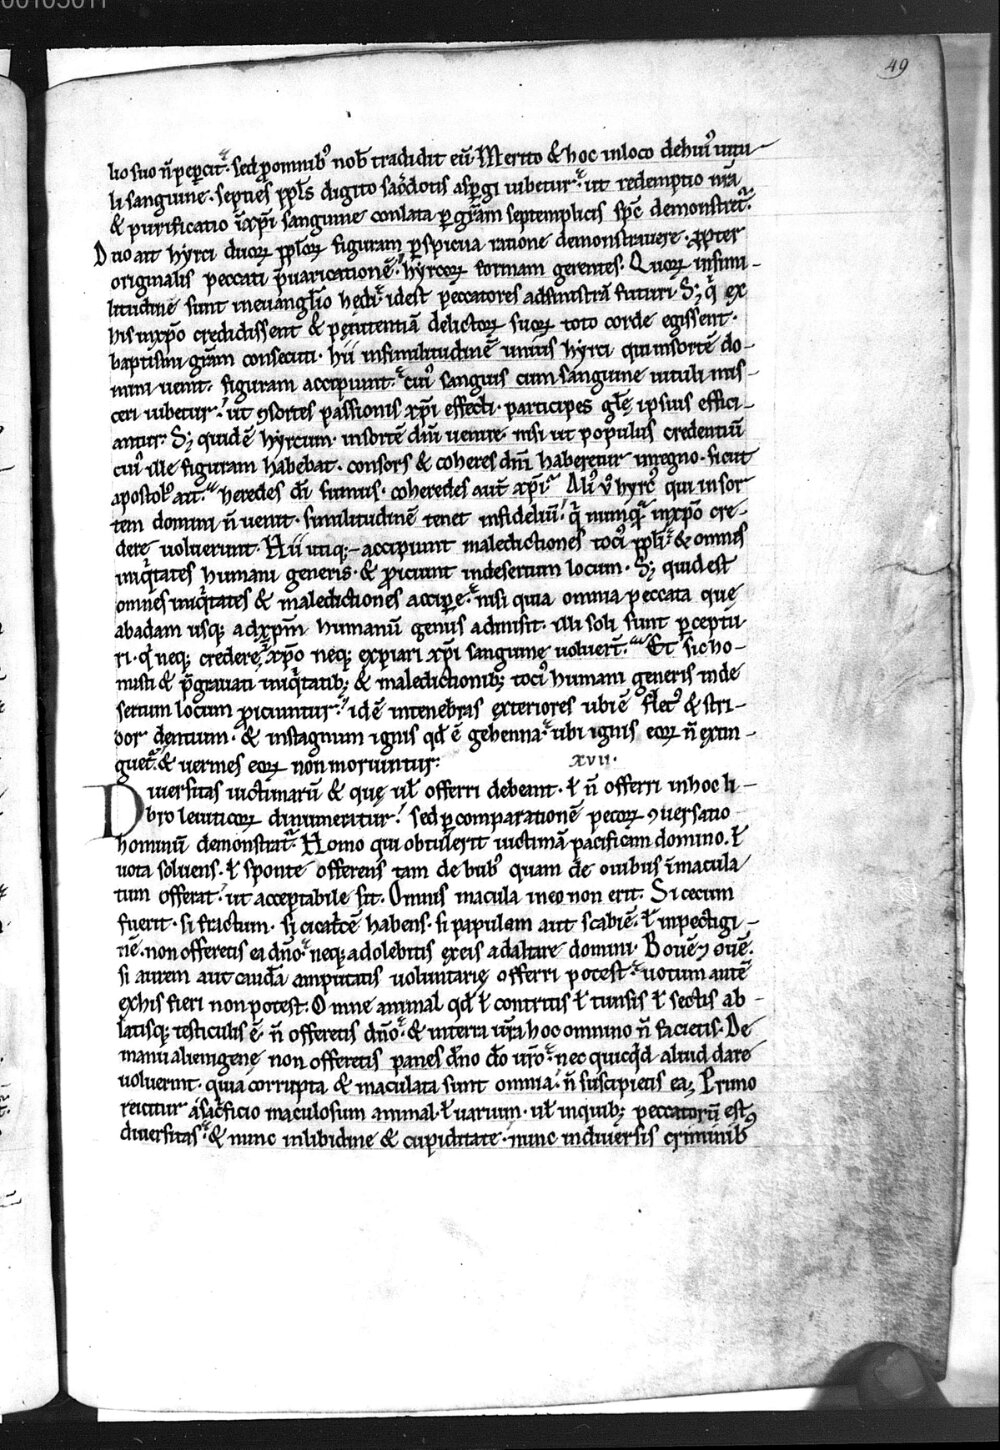 49
lio suo n̄ peꝑcit. sed ꝓ omnibꝰ nob̄ tradidit eū. Merito & hoc in loco de huiꝰ uitu-
li sanguine. septies ppl̄s digito sac̄dotis asꝑgi iubetur. ut redemptio nr̄a
& purificatio in xp̄i sanguine conlata ꝑ gr̄am septemplicis sp̄c demonstret̄.
Duo aū hyrci duoꝝ pploꝝ figuram ꝑspicua ratione demonstrauere. ꝓpter
originalis peccati p̄uaricationē. hyrcoꝝ formam gerentes. Quoꝝ in simi-
litudine sunt in euangl̄io hędi. id est peccatores ad sinistrā futuri. S; qͥ ex
his in xp̄o credidissent & pęnitentiā delictoꝝ suoꝝ toto corde egissent.
baptismi gr̄am consecuti. hii in similitudinē unius hyrci qui in sortē do-
mini uenit. figuram accipiunt. cuiꝰ sanguis cum sanguine uituli mis-
ceri iubetur. ut ꝯsortes passionis xp̄i effecti. participes gl̄ę ipsius effici-
antur. S; quid ē hyrcum. in sortē dn̄i uenire. nisi ut populus credentiū
cuiꝰ ille figuram habebat. consors & coheres dn̄i haberetur in regno. sicut
apostolꝰ ait. heredes dī sumus. coheredes aut̄ xp̄i. Aliꝰ ꝟ hyrcꝰ qui in sor
tem domini n̄ uenit. similitudinē tenet infideliū. qͥ numqͣ in xp̄o cre-
dere uoluerunt. Hii utiq; accipiunt maledictiones totiꝰ ppl̄i. & omnes
iniqͥtates humani generis. & ꝓiciunt in desertum locum. S; quid est
omnes iniqͥtates & maledictiones accipe. nisi quia omnia peccata quę
ab adam usq; ad xp̄m humanū genus admisit. illi soli sunt ꝑceptu
ri. qͥ neq; credere xp̄o neq; expiari xp̄i sanguine uoluert̄. Et sic ho-
nusti & p̄grauati iniqͥtatib; & maledictionib; totiꝰ humani generis in de
sertum locum ꝓiciuntur. id ē in tenebras exteriores ubi ē fletꝰ & stri-
dor dentium. & in stagnum ignis qd̄ ē gehenna. ubi ignis eoꝝ n̄ extin-
guet̄. & uermes eoꝝ non moriuntur:
xvii.
Diuersitas uictimarū & quę ul̄ offerri debeant. ł n̄ offerri in hoc li-
bro leuiticoꝝ dinumeratur. sed ꝑ comparationē pecoꝝ ꝯuersatio
hominū demonstrat̄. Homo qui obtulerit uictimā pacificam domino. ł
uota soluens. ł sponte offerens tam de bubꝰ quam de ouibus īmacula
tum offerat. ut acceptabile sit. Omnis macula in eo non erit. Si cecum
fuerit. si fractum. si cicat̄cē habens. si papulam aut scabiē. ł inpectigi-
nē. non offeretis ea dn̄o. neq; adolebitis ex eis ad altare domini. Bouē ⁊ ouē.
si aurem aut caudā amputatis uoluntarię offerri potest. uotum autē
ex his fieri non potest. Omne animal qd̄ ł contritis ł tunsis ł sectis ab-
latisq; testiculis ē. n̄ offeretis dn̄o. & in terra ur̄a hoc omnino n̄ facietis. De
manu alienigenę non offeretis panes dn̄o dō ur̄o. nec quicqͥd aliud dare
uoluerint. quia corrupta & maculata sunt omnia. n̄ suscipietis ea; Primo
reicitur a sac̄ficio maculosum animal. ł uarium. ul̄ in quib; peccatorū est
diuersitas. & nunc in libidine & cupiditate. nunc in diuersis criminibꝰ